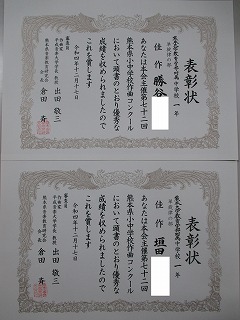 表彰状
熊本大学教育学部附属中学校 一年
佳作 勝谷
あなたは本会主催第七十二回
熊本県小中学校作曲コンクール
において頭書のとおり優秀な
成績を収められましたので
これを賞します
令和四年十二月十七日
審査員
作曲家
平成音楽大学学長 出田敬三
熊本県音楽教育研究会
会長 倉田 斉
表彰状
中学校 一年
佳作 垣田
あなたは本会主催第七十二回
熊本県小中学校作曲コンクール
において頭書のとおり優秀な
成績を収められましたので
これを賞します
令和四年十二月十七日
審査員
作曲家
平成音楽大学学長 出田敬三
熊本県音楽教育研究会
会長 倉田 斉